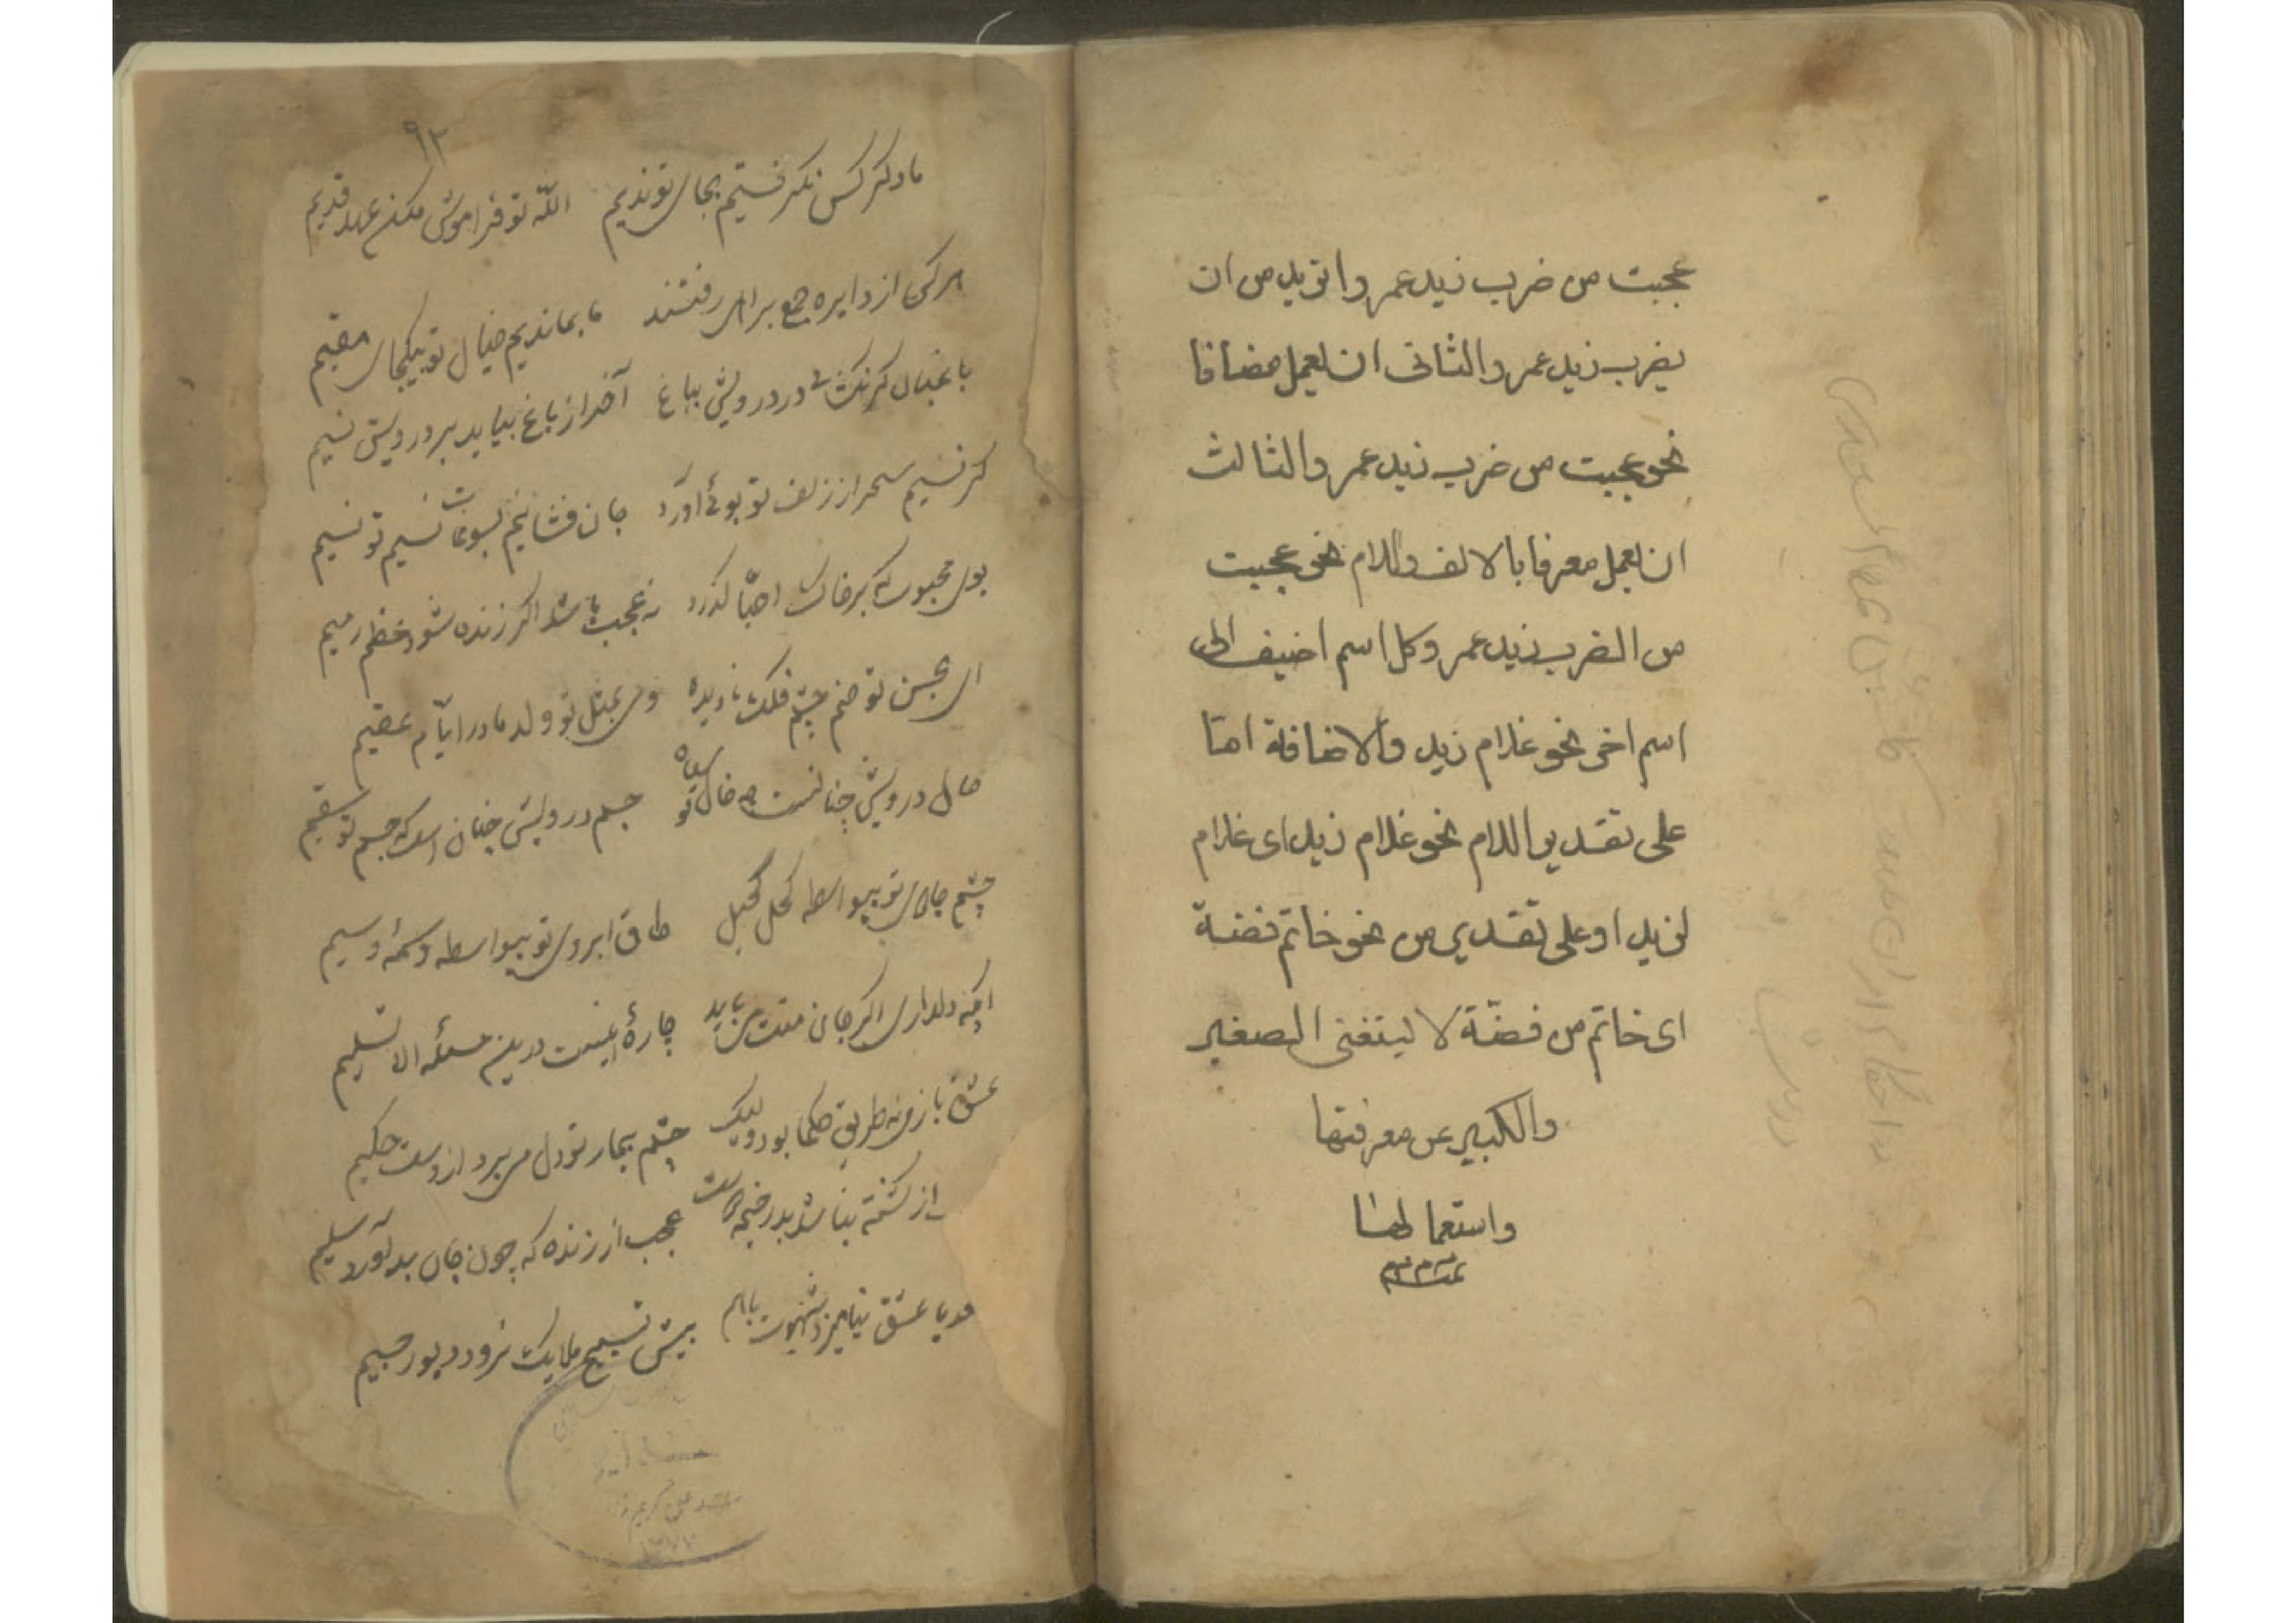 عجبت من ضرب زيد عمروا تريد من ان
يضرب زيد عمر والثانى ان يعمل مضافا
نحو عجبت من ضرب زيد عمر والثالث
ان يعمل معرفا بالالف واللام نحو عجبت
من الضرب زيد عمر وكل اسم اضيف الى
اسم اخر نحو غلام زيد والاضافة اما
على تقدير اللام نحو غلام زيد اى غلام
لزيد او على تقدير من نحو خاتم فضة
اى خاتم من فضة لا يستغنى الصغير
والكبير عن معرفتها
واستعمالها
تمت م م م
۹۲
ما دگر کس نگرفتیم بجای تو ندیم الله تو فراموش مکن عهد قدیم
هر کس از دایره جمع براهی رفتند ما بماندیم خیال تو بیکجای مقیم
باغبان گر نگشاید در درویش بباغ آخر از باغ بیاید بر درویش نسیم
گر نسیم سحر از زلف تو بوئی آورد جان فشانیم بسوغات نسیم تو نسیم
بوی محبوب که بر خاک احبا گذرد نه عجب باشد اگر زنده شود عظم رمیم
ای بحسن تو صنم چشم فلک نادیده وی بمثل تو ولد مادر ایام عقیم
حال درویش چنانست که خال تو سیاه جسم درویش چنان است که چشم تو سقیم
چشم جادوی تو بیواسطه کحل کحیل طاق ابروی تو بیواسطه وسمه وسیم
ایکه دلداری اگر جان منت می‌باید چاره‌ای نیست درین مسئله الا تسلیم
عشق بازی نه طریق حکما بود ولیک چشم بیمار تو دل می‌برد از دست حکیم
از کشته نباشد بدر خیمه دوست عجب از زنده که چون جان بدر آورد سلیم
سعدیا عشق نیامیزد و شهوت باهم پیش تسبیح ملایک نرود دیو رجیم